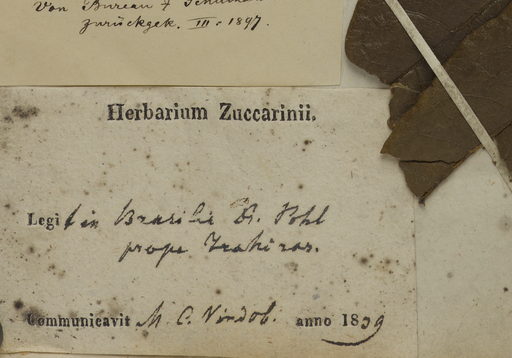 Von Bureau &
zurückgek. III. 1897.
Herbarium Zuccarinii.
Legit in Brasilie D. Pohl
prope
Communicavit M. C. Vindob. anno 1839